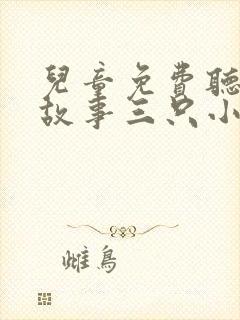 兒童免費聽
故事三只小
雌鳥